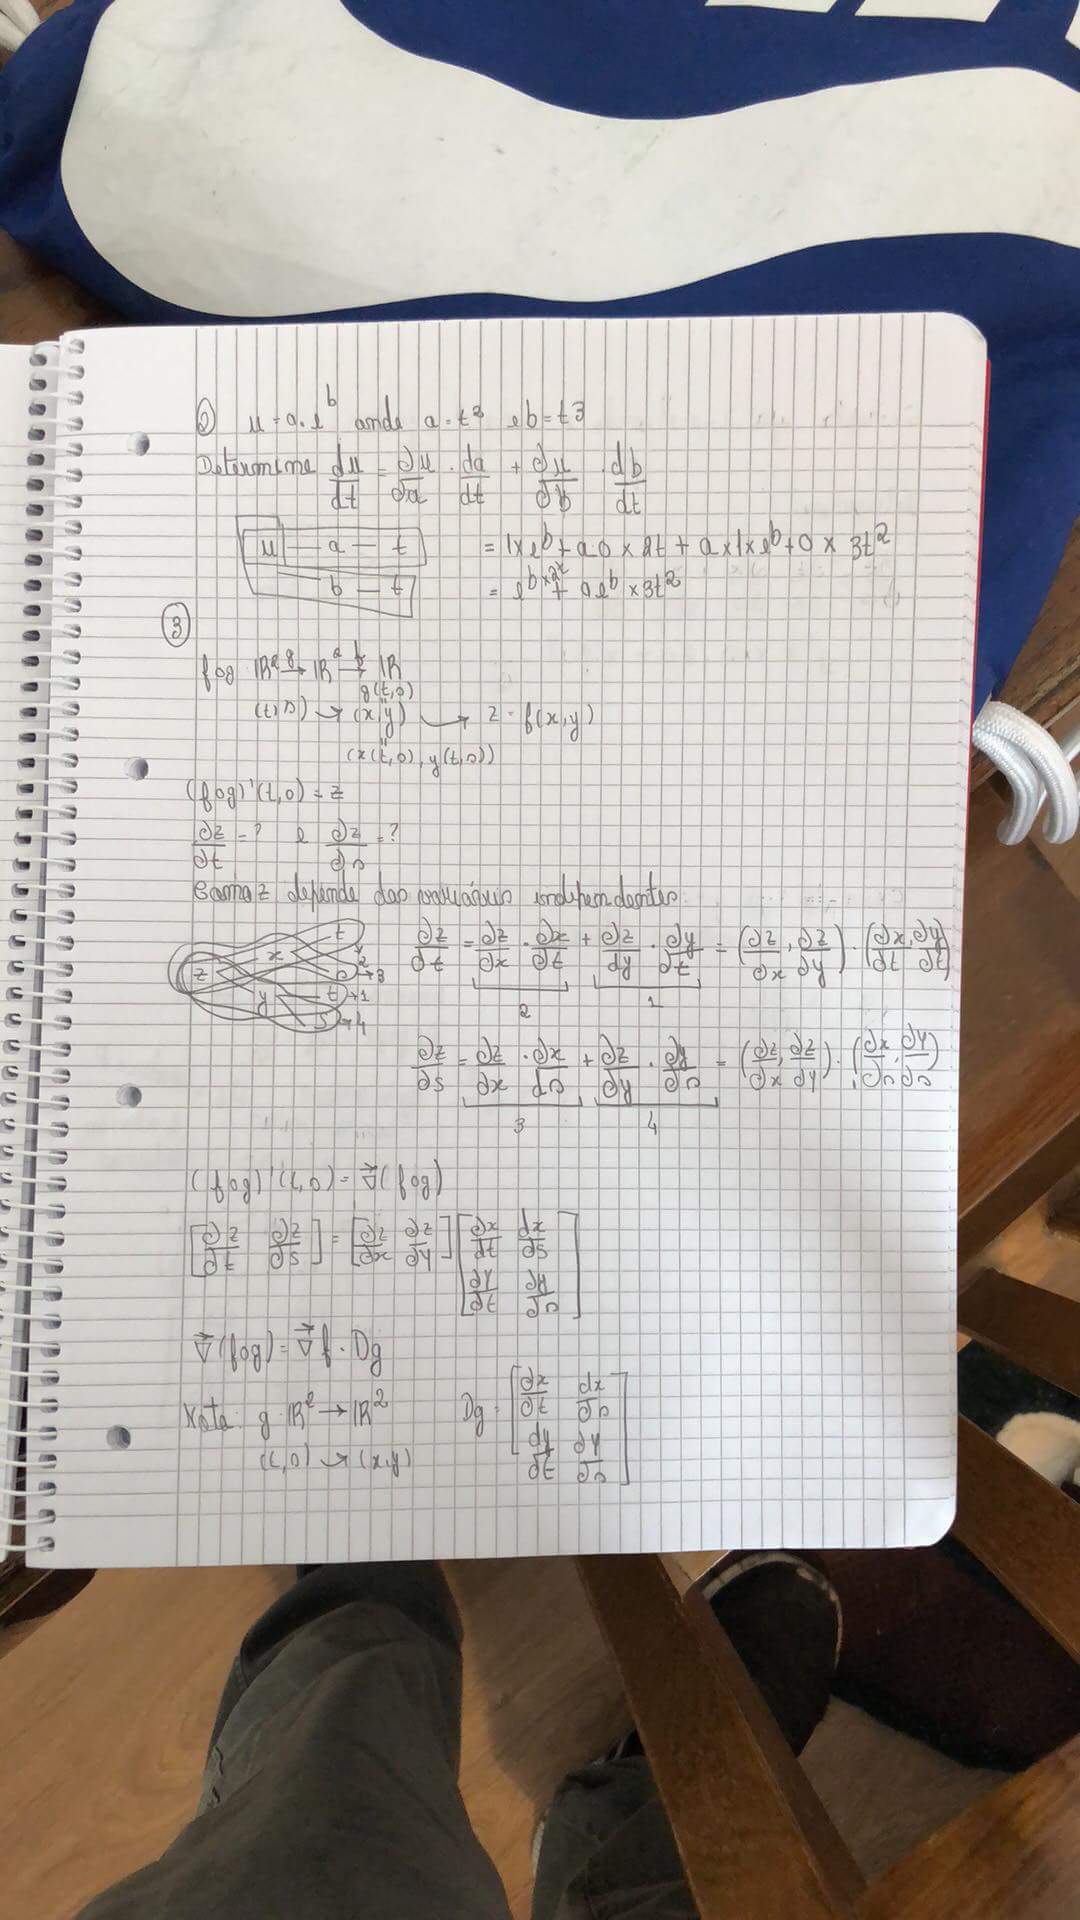 ② u = a.e^b onde a = t² e b = t3
Determine du/dt = ∂u/∂a . da/dt + ∂u/∂b . db/dt
u — a — t = 1xe^b + a0 x 2t + a x 1 x e^b + 0 x 3t²
b — t = e^b x 2t + ae^b x 3t²
③
fog IR² g→ IR² f→ IR
g(t,s)
(t,s) → (x,y) → z = f(x,y)
(x(t,s), y(t,s))
(fog)'(t,s) = z
∂z/∂t = ? e ∂z/∂s = ?
Como z depende das variáveis independentes.
z x t s y t s →2 →3 →1 →4
∂z/∂t = ∂z/∂x . ∂x/∂t + ∂z/∂y . ∂y/∂t = (∂z/∂x, ∂z/∂y) . (∂x/∂t, ∂y/∂t)
2 1
∂z/∂s = ∂z/∂x . ∂x/∂s + ∂z/∂y . ∂y/∂s = (∂z/∂x, ∂z/∂y) . (∂x/∂s, ∂y/∂s)
3 4
(fog)'(t,s) = ∇⃗(fog)
[∂z/∂t ∂z/∂s] = [∂z/∂x ∂z/∂y] [∂x/∂t ∂x/∂s
∂y/∂t ∂y/∂s]
∇⃗(fog) = ∇⃗f . Dg
Nota: g IR² → IR² Dg = [∂x/∂t ∂x/∂s
(t,s) → (x,y) ∂y/∂t ∂y/∂s]